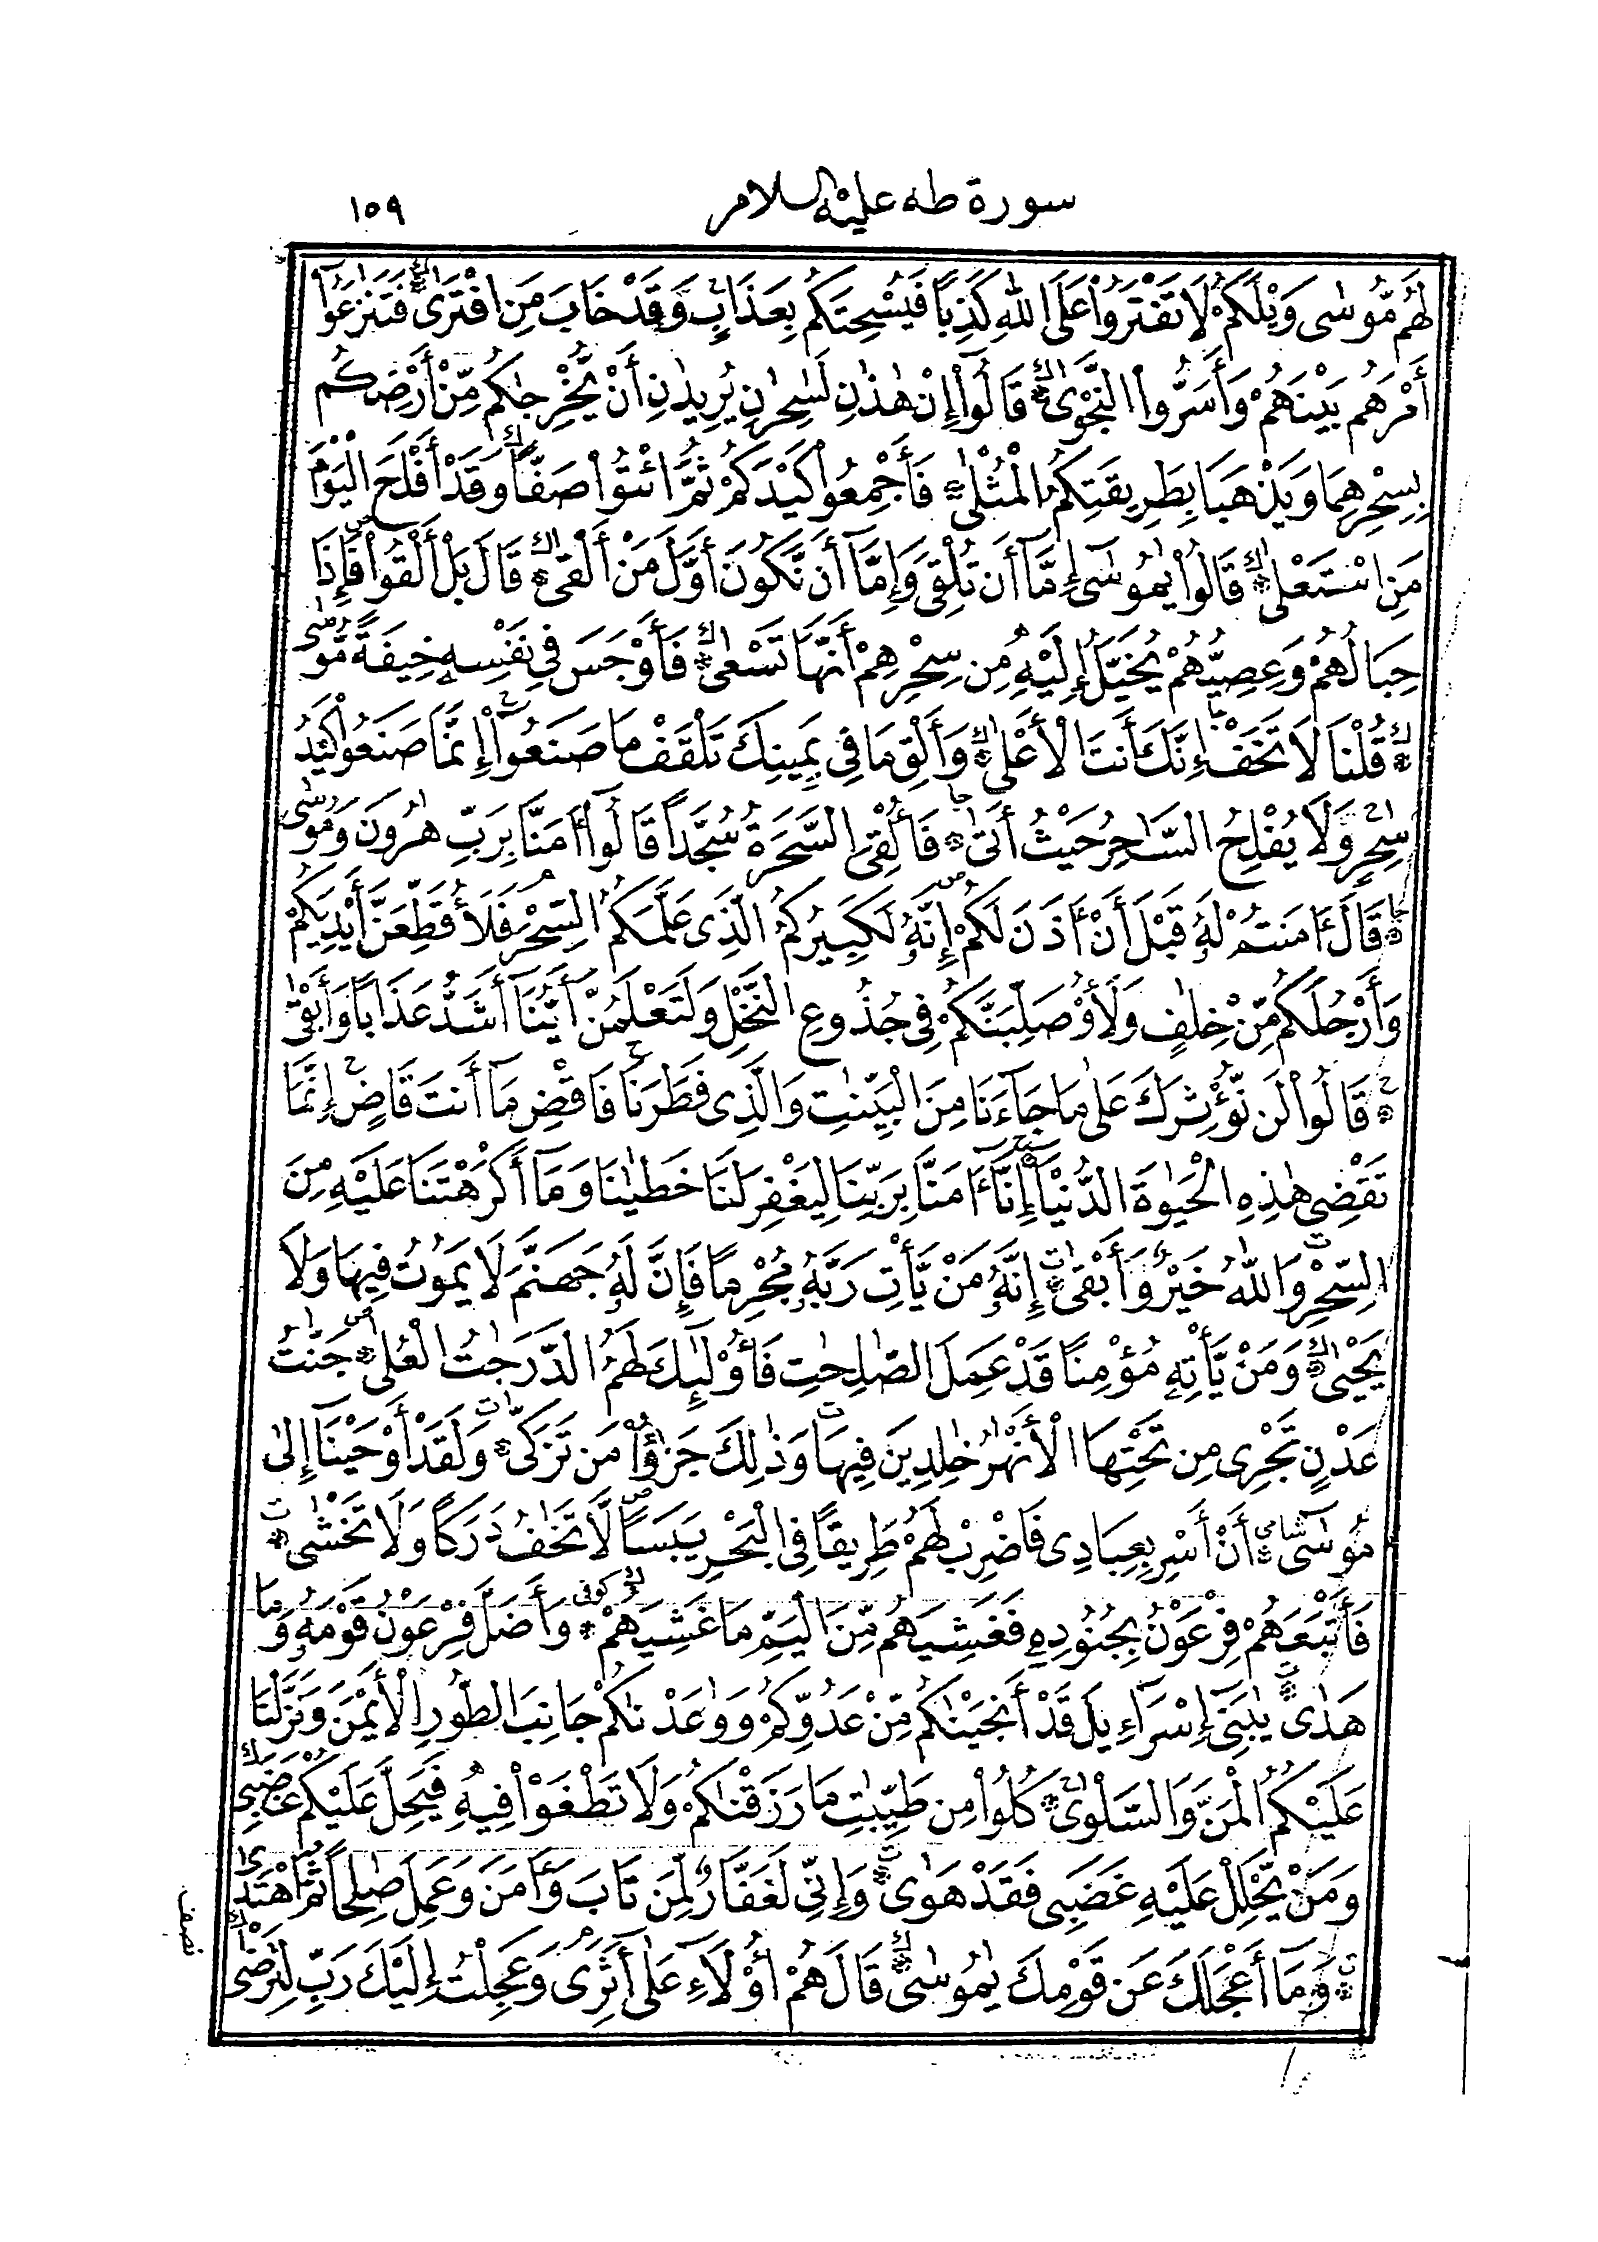 سورة طه عليه السلام ١٥٩
لَهُم مُّوسَىٰ وَيْلَكُمْ لَا تَفْتَرُوا۟ عَلَى ٱللَّهِ كَذِبًا فَيُسْحِتَكُم بِعَذَابٍ وَقَدْ خَابَ مَنِ ٱفْتَرَىٰ فَتَنَٰزَعُوٓا۟
أَمْرَهُم بَيْنَهُمْ وَأَسَرُّوا۟ ٱلنَّجْوَىٰ قَالُوٓا۟ إِنْ هَٰذَٰنِ لَسَٰحِرَٰنِ يُرِيدَٰنِ أَنْ يُّخْرِجَٰكُم مِّنْ أَرْضِكُم
بِسِحْرِهِمَا وَيَذْهَبَا بِطَرِيقَتِكُمُ ٱلْمُثْلَىٰ فَأَجْمِعُوا۟ كَيْدَكُمْ ثُمَّ ٱئْتُوا۟ صَفًّا وَقَدْ أَفْلَحَ ٱلْيَوْمَ
مَنِ ٱسْتَعْلَىٰ قَالُوا۟ يَٰمُوسَىٰٓ إِمَّآ أَن تُلْقِىَ وَإِمَّآ أَن نَّكُونَ أَوَّلَ مَنْ أَلْقَىٰ قَالَ بَلْ أَلْقُوا۟ فَإِذَا
حِبَالُهُمْ وَعِصِيُّهُمْ يُخَيَّلُ إِلَيْهِ مِن سِحْرِهِمْ أَنَّهَا تَسْعَىٰ فَأَوْجَسَ فِى نَفْسِهِۦ خِيفَةً مُّوسَىٰ
قُلْنَا لَا تَخَفْ إِنَّكَ أَنتَ ٱلْأَعْلَىٰ وَأَلْقِ مَا فِى يَمِينِكَ تَلْقَفْ مَا صَنَعُوٓا۟ إِنَّمَا صَنَعُوا۟ كَيْدُ
سَٰحِرٍ وَلَا يُفْلِحُ ٱلسَّاحِرُ حَيْثُ أَتَىٰ فَأُلْقِىَ ٱلسَّحَرَةُ سُجَّدًا قَالُوٓا۟ ءَامَنَّا بِرَبِّ هَٰرُونَ وَمُوسَىٰ
قَالَ ءَامَنتُمْ لَهُۥ قَبْلَ أَنْ ءَاذَنَ لَكُمْ إِنَّهُۥ لَكَبِيرُكُمُ ٱلَّذِى عَلَّمَكُمُ ٱلسِّحْرَ فَلَأُقَطِّعَنَّ أَيْدِيَكُمْ
وَأَرْجُلَكُم مِّنْ خِلَٰفٍ وَلَأُو۟صَلِّبَنَّكُمْ فِى جُذُوعِ ٱلنَّخْلِ وَلَتَعْلَمُنَّ أَيُّنَآ أَشَدُّ عَذَابًا وَأَبْقَىٰ
قَالُوا۟ لَن نُّؤْثِرَكَ عَلَىٰ مَا جَآءَنَا مِنَ ٱلْبَيِّنَٰتِ وَٱلَّذِى فَطَرَنَا فَٱقْضِ مَآ أَنتَ قَاضٍ إِنَّمَا
تَقْضِى هَٰذِهِ ٱلْحَيَوٰةَ ٱلدُّنْيَآ إِنَّآ ءَامَنَّا بِرَبِّنَا لِيَغْفِرَ لَنَا خَطَٰيَٰنَا وَمَآ أَكْرَهْتَنَا عَلَيْهِ مِنَ
ٱلسِّحْرِ وَٱللَّهُ خَيْرٌ وَأَبْقَىٰ إِنَّهُۥ مَنْ يَّأْتِ رَبَّهُۥ مُجْرِمًا فَإِنَّ لَهُۥ جَهَنَّمَ لَا يَمُوتُ فِيهَا وَلَا
يَحْيَىٰ وَمَنْ يَّأْتِهِۦ مُؤْمِنًا قَدْ عَمِلَ ٱلصَّٰلِحَٰتِ فَأُو۟لَٰٓئِكَ لَهُمُ ٱلدَّرَجَٰتُ ٱلْعُلَىٰ جَنَّٰتُ
عَدْنٍ تَجْرِى مِن تَحْتِهَا ٱلْأَنْهَٰرُ خَٰلِدِينَ فِيهَا وَذَٰلِكَ جَزَٰٓؤُا۟ مَن تَزَكَّىٰ وَلَقَدْ أَوْحَيْنَآ إِلَىٰ
مُوسَىٰٓ شامى أَنْ أَسْرِ بِعِبَادِى فَٱضْرِبْ لَهُمْ طَرِيقًا فِى ٱلْبَحْرِ يَبَسًا لَّا تَخَٰفُ دَرَكًا وَلَا تَخْشَىٰ
فَأَتْبَعَهُمْ فِرْعَوْنُ بِجُنُودِهِۦ فَغَشِيَهُم مِّنَ ٱلْيَمِّ مَا غَشِيَهُمْ كوفى وَأَضَلَّ فِرْعَوْنُ قَوْمَهُۥ وَمَا
هَدَىٰ يَٰبَنِىٓ إِسْرَآءِيلَ قَدْ أَنجَيْنَٰكُم مِّنْ عَدُوِّكُمْ وَوَٰعَدْنَٰكُمْ جَانِبَ ٱلطُّورِ ٱلْأَيْمَنَ وَنَزَّلْنَا
عَلَيْكُمُ ٱلْمَنَّ وَٱلسَّلْوَىٰ كُلُوا۟ مِن طَيِّبَٰتِ مَا رَزَقْنَٰكُمْ وَلَا تَطْغَوْا۟ فِيهِ فَيَحِلَّ عَلَيْكُمْ غَضَبِى
وَمَنْ يَّحْلِلْ عَلَيْهِ غَضَبِى فَقَدْ هَوَىٰ وَإِنِّى لَغَفَّارٌ لِّمَن تَابَ وَءَامَنَ وَعَمِلَ صَٰلِحًا ثُمَّ ٱهْتَدَىٰ
نصف
وَمَآ أَعْجَلَكَ عَن قَوْمِكَ يَٰمُوسَىٰ قَالَ هُمْ أُو۟لَآءِ عَلَىٰٓ أَثَرِى وَعَجِلْتُ إِلَيْكَ رَبِّ لِتَرْضَىٰ